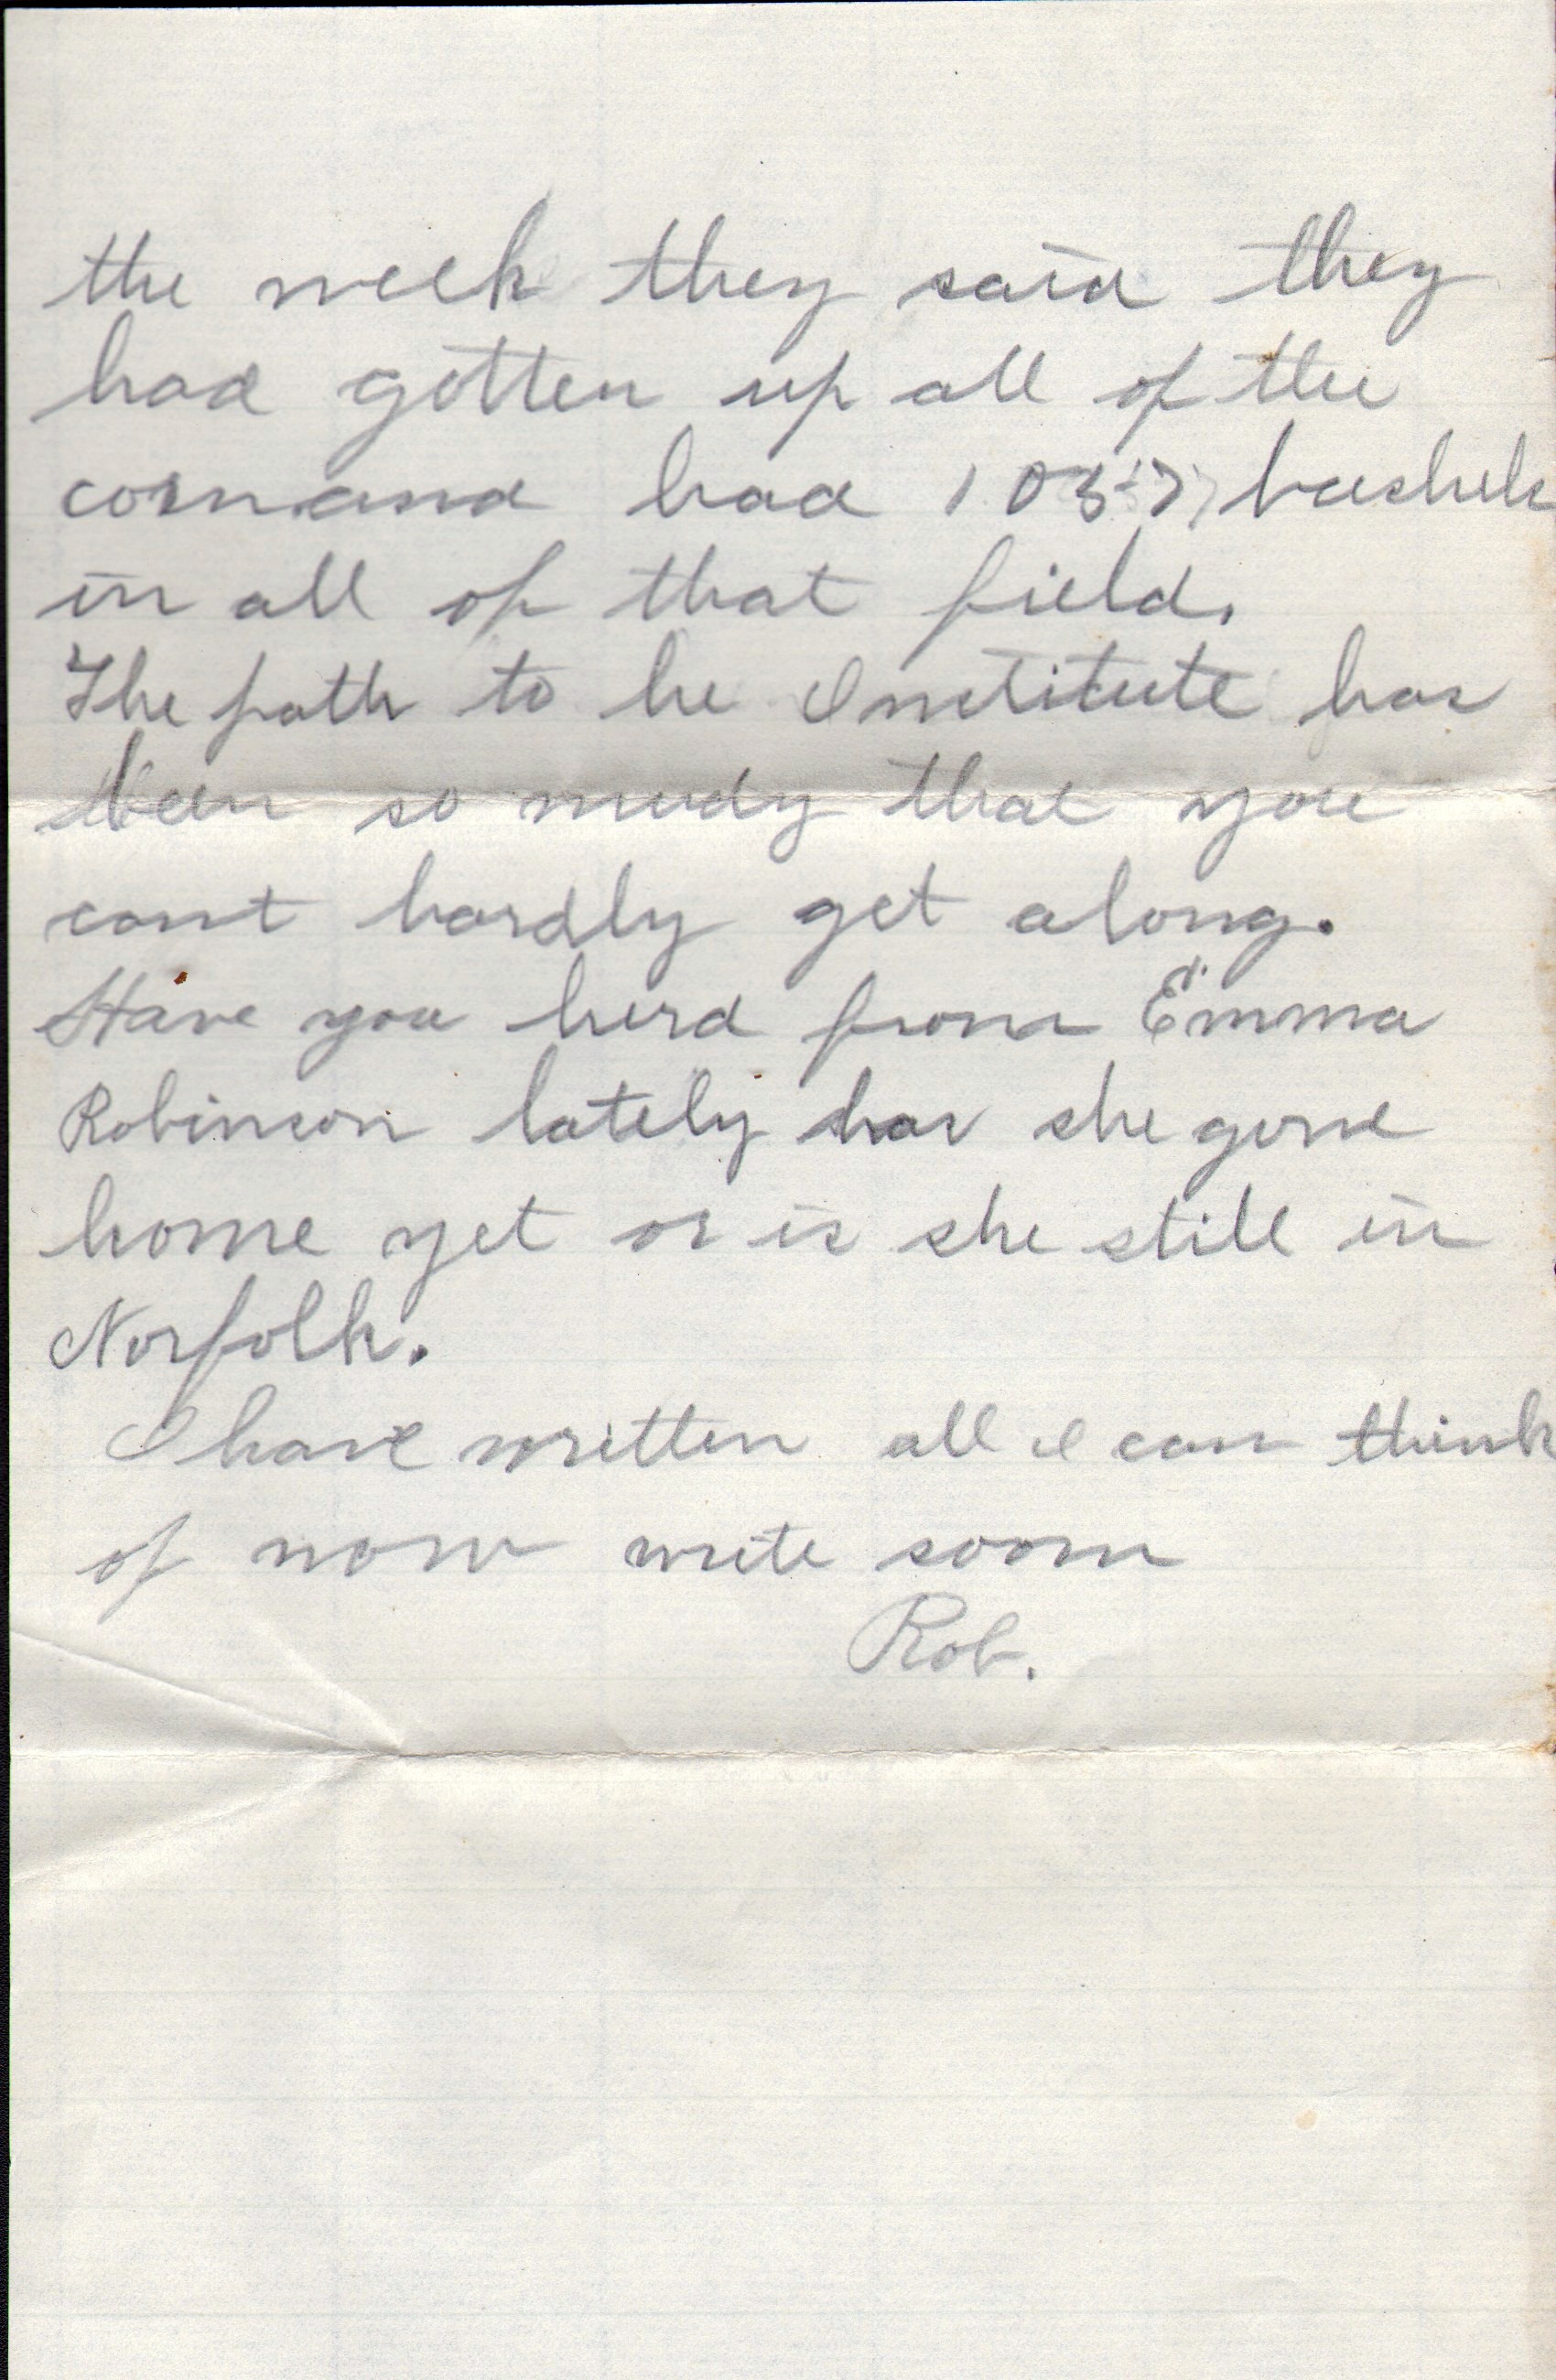 the week they said they
had gotten up all of the
corn and had 1057 bushels
in all of that field.
The path to he Institute has
been so mudy that you
cant hardly get along.
Have you herd from Emma
Robinson lately has she gone
home yet or is she still in
Norfolk.
I have written all I can think
of now write soon
Rob.